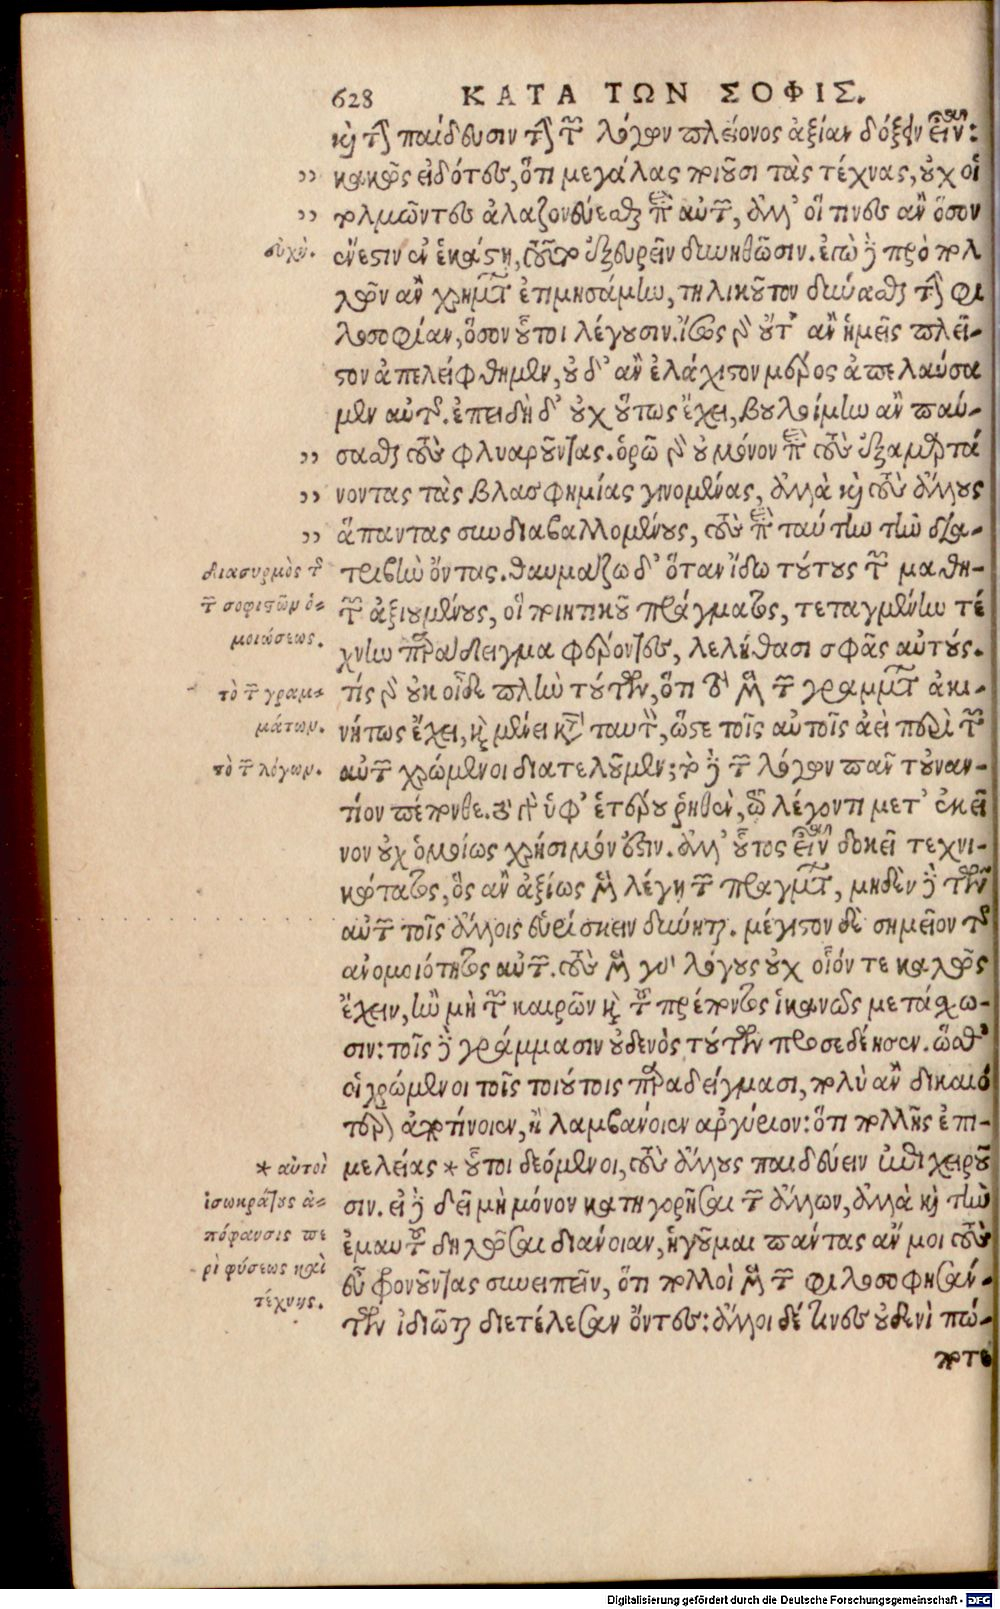 628 ΚΑΤΑ ΤΩΝ ΣΟΦΙΣ.
καὶ τὴν παίδευσιν τὴν τῶν λόγων πλείονος ἀξίαν δόξειν εἶναι:
κακῶς εἰδότες, ὅτι μεγάλας ποιοῦσι τὰς τέχνας, οὐχ οἱ
τολμῶντες ἀλαζονεύεσθαι περὶ αὐτῶν, ἀλλ' οἵ τινες ἂν ὅσον
εὐχή.
ἔνεστιν ἐν ἑκάστῃ, τοῦτο ἐξευρεῖν δυνηθῶσιν. ἐγὼ δὲ πρὸ πολ
λῶν ἂν χρημάτων ἐτιμησάμην, τηλικοῦτον δύνασθαι τὴν φι
λοσοφίαν, ὅσον οὗτοι λέγουσιν. ἴσως γὰρ οὔτ' ἂν ἡμεῖς πλεῖ-
στον ἀπελείφθημεν, οὐδ' ἂν ἐλάχιστον μέρος ἀπελαύσα
μεν αὐτῆς. ἐπειδὴ δ' οὐχ οὕτως ἔχει, βουλοίμην ἂν παύ-
σασθαι τοὺς φλυαροῦντας. ὁρῶ γὰρ οὐ μόνον περὶ τοὺς ἐξαμαρτά
νοντας τὰς βλασφημίας γινομένας, ἀλλὰ καὶ τοὺς ἄλλους
ἅπαντας συνδιαβαλλομένους, τοὺς περὶ ταύτην τὴν δια-
διασυρμὸς τῆς
τριβὴν ὄντας. θαυμάζω δ' ὅταν ἴδω τούτους τῶν μαθη-
τῶν σοφιστῶν ὁ-
τῶν ἀξιουμένους, οἳ ποιητικοῦ πράγματος, τεταγμένην τέ
μοιώσεως.
χνην παράδειγμα φέροντες, λελήθασι σφᾶς αὐτούς.
τὸ τῶν γραμ-
τίς γὰρ οὐκ οἶδε πλὴν τούτων, ὅτι τὸ μὲν τῶν γραμμάτων ἀκι-
μάτων.
νήτως ἔχει, καὶ μένει κατὰ ταυτὸν, ὥστε τοῖς αὐτοῖς ἀεὶ περὶ τῶν
τὸ τῶν λόγων.
αὐτῶν χρώμενοι διατελοῦμεν; τὸ δὲ τῶν λόγων πᾶν τοὐναν-
τίον πέπονθε. τὸ γὰρ ὑφ' ἑτέρου ῥηθὲν, τῷ λέγοντι μετ' ἐκεῖ
νον οὐχ ὁμοίως χρήσιμόν ἐστιν. ἀλλ' οὗτος εἶναι δοκεῖ τεχνι-
κώτατος, ὃς ἂν ἀξίως μὲν λέγῃ τῶν πραγμάτων, μηδὲν δὲ τῶν
αὐτῶν τοῖς ἄλλοις εὑρίσκειν δύνηται. μέγιστον δὲ σημεῖον τῆς
ἀνομοιότητος αὐτῶν. τοὺς μὲν γὰρ λόγους οὐχ οἷόν τε καλῶς
ἔχειν, ἢν μὴ τῶν καιρῶν καὶ τοῦ πρέποντος ἱκανῶς μετάσχω-
σιν: τοῖς δὲ γράμμασιν οὐδενὸς τούτων προσεδέησεν. ὥσθ'
οἱ χρώμενοι τοῖς τοιούτοις παραδείγμασι, πολὺ ἂν δικαιό
τερον ἀποτίνοιεν, ἢ λαμβάνοιεν ἀργύριον: ὅτι πολλῆς ἐπι-
* αὐτοὶ
μελείας * οὗτοι δεόμενοι, τοὺς ἄλλους παιδεύειν ἐπιχειροῦ
ἰσωκράτους ἀ-
σιν. εἰ δὲ δεῖ μὴ μόνον κατηγορῆσαι τῶν ἄλλων, ἀλλὰ καὶ τὴν
πόφανσις πε
ἐμαυτοῦ δηλῶσαι διάνοιαν, ἡγοῦμαι πάντας ἄν μοι τοὺς
ρὶ φύσεως καὶ
εὖ φρονοῦντας συνειπεῖν, ὅτι πολλοὶ μὲν τῶν φιλοσοφησάν-
τέχνης.
των ἰδιῶται διετέλεσαν ὄντες: ἄλλοι δέ τινες οὐδενὶ πώ-
ποτε
Digitalisierung gefördert durch die Deutsche Forschungsgemeinschaft - DFG